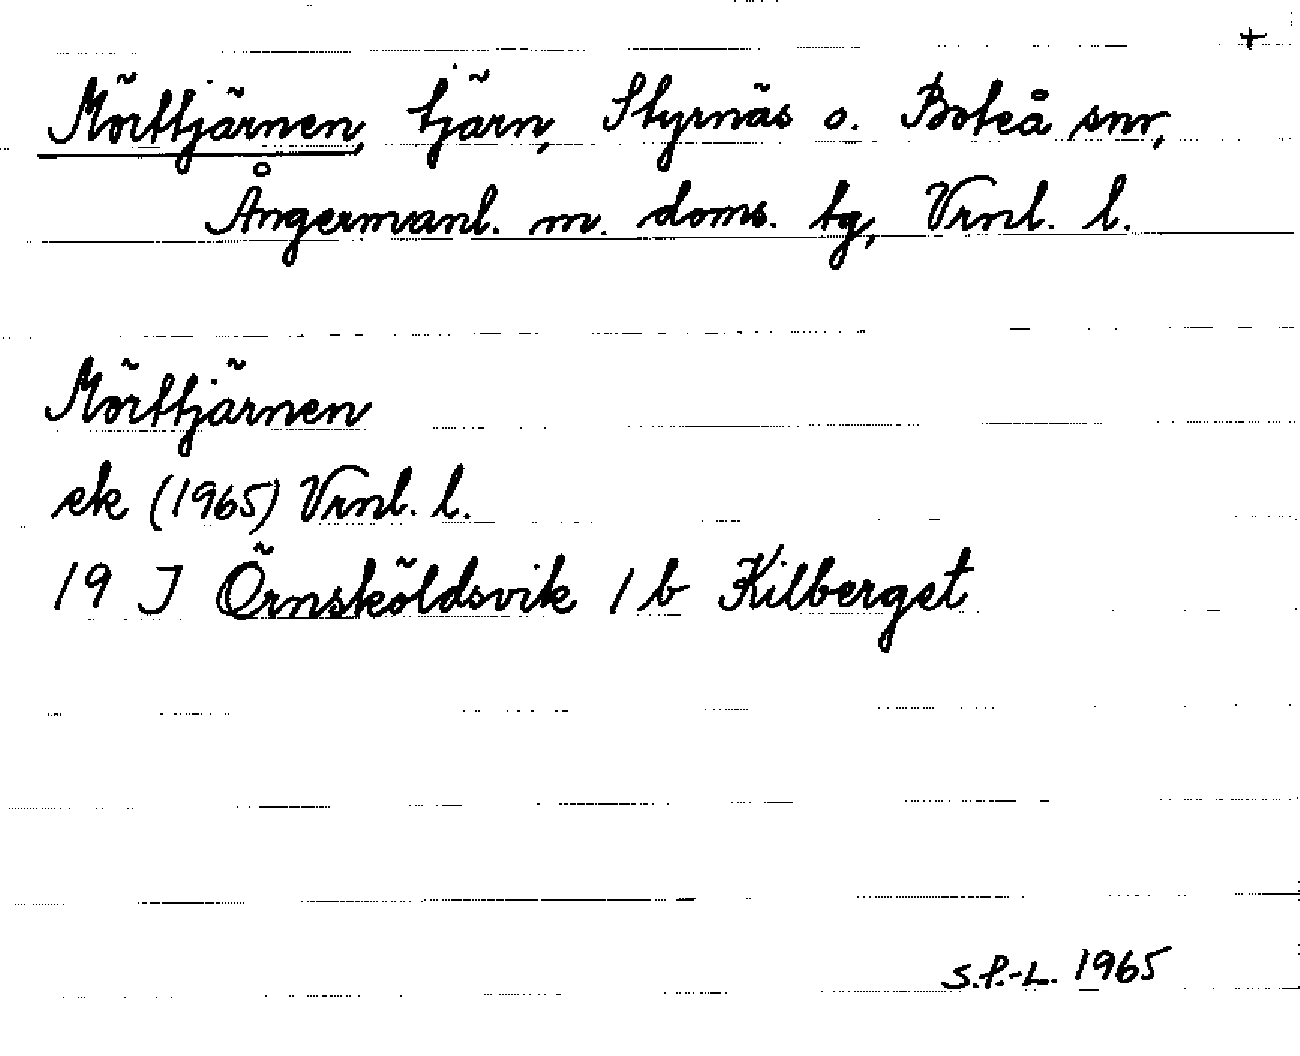 +
Mörttjärnen, tjärn, Styrnäs o. Boteå snr,
Ångermanl. m. doms. tg, Vrnl. l.
Mörttjärnen
ek (1965) Vrnl. l.
19 J Örnsköldsvik 1 b Kilberget
S.P.-L. 1965